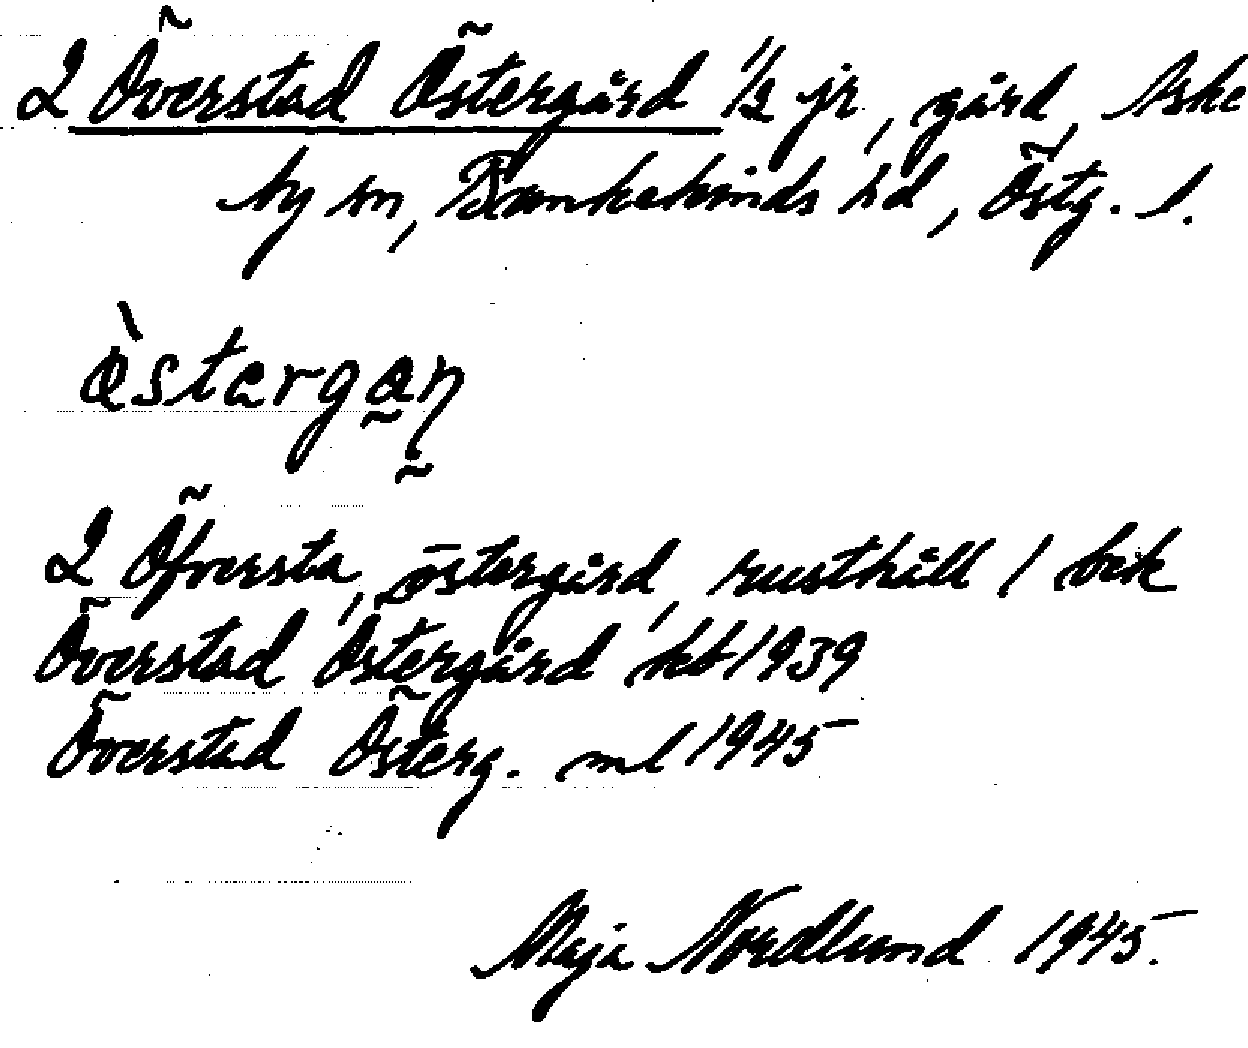 2 Överstad Östergård 1/2 jr, gård, Aske
by sn, Bankekinds hd, Östg. l.
östergan
2 Öfversta, östergård, rusthåll / bek
Överstad Östergård kb 1939
Överstad Österg. ml 1945
Maja Nordlund 1945.